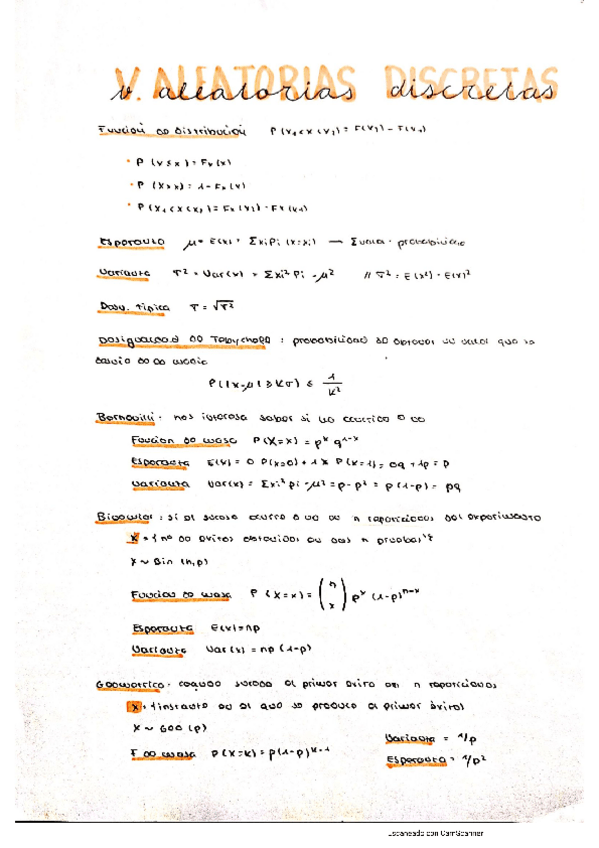 V. ALEATORIAS DISCRETAS
v. aleatorias discretas
Función de distribución P(x₁<x<x₂) = F(x₂) - F(x₁)
• P(x≤x) = Fx(x)
• P(x>x) = 1-Fx(x)
• P(x₁<x<x₂) = Fx(x₂) - Fx(x₁)
Esperanza μ = E(x) = Σxi Pi (x=xi) → Σvalor · probabilidad
Varianza σ² = Var(x) = Σxi² Pi - μ² // σ² = E(x²) - E(x)²
Desv. típica σ = √σ²
Desigualdad de Tchebycheff : probabilidad de obtener un valor que se
desvía de la media
P(|x-μ| ≥ Kσ) ≤ 1/K²
Bernouilli : nos interesa saber si ha ocurrido o no
Función de masa P(X=x) = pˣ q¹⁻ˣ
Esperanza E(x) = 0 P(x=0) + 1 x P(x=1) = 0q + 1p = p
Varianza Var(x) = Σxi² pi - μ² = p - p² = p(1-p) = pq
Binomial : si el suceso ocurre o no en n repeticiones del experimento
x = {nº de éxitos obtenidos en las n pruebas}
x ~ Bin (n,p)
Función de masa P(X=x) = (n x) pˣ (1-p)ⁿ⁻ˣ
Esperanza E(x) = np
Varianza Var(x) = np(1-p)
Geométrica : cuando sucede el primer éxito en n repeticiones
x = {instante en el que se produce el primer éxito}
x ~ Geo (p)
Varianza = 1/p
F de masa P(X=K) = p(1-p)ᴷ⁻¹
Esperanza = 1/p²
Escaneado con CamScanner